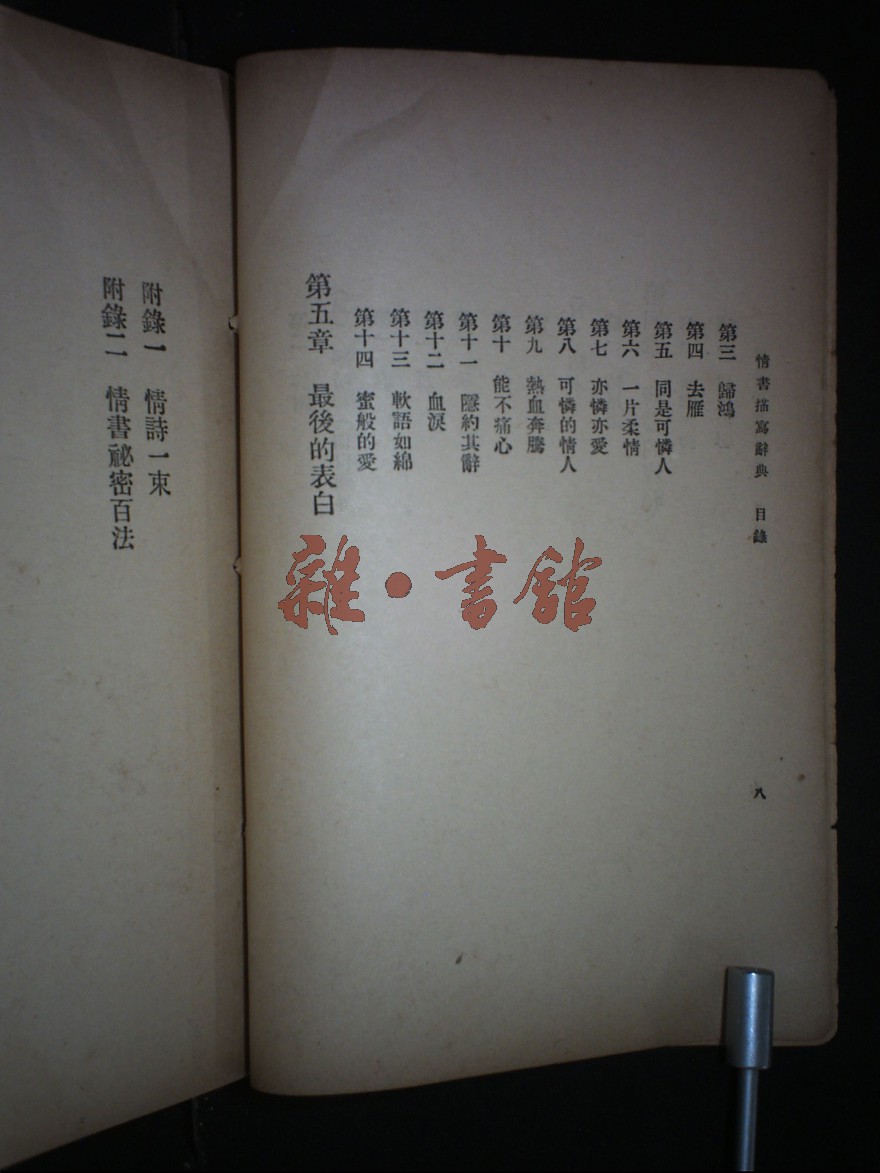 情書描寫辭典　目錄
八
第三　歸鴻
第四　去雁
第五　同是可憐人
第六　一片柔情
第七　亦憐亦愛
第八　可憐的情人
第九　熱血奔騰
第十　能不痛心
第十一　隱約其辭
第十二　血淚
第十三　軟語如綿
第十四　蜜般的愛
第五章　最後的表白
附錄一　情詩一束
附錄二　情書祕密百法
雜·書館